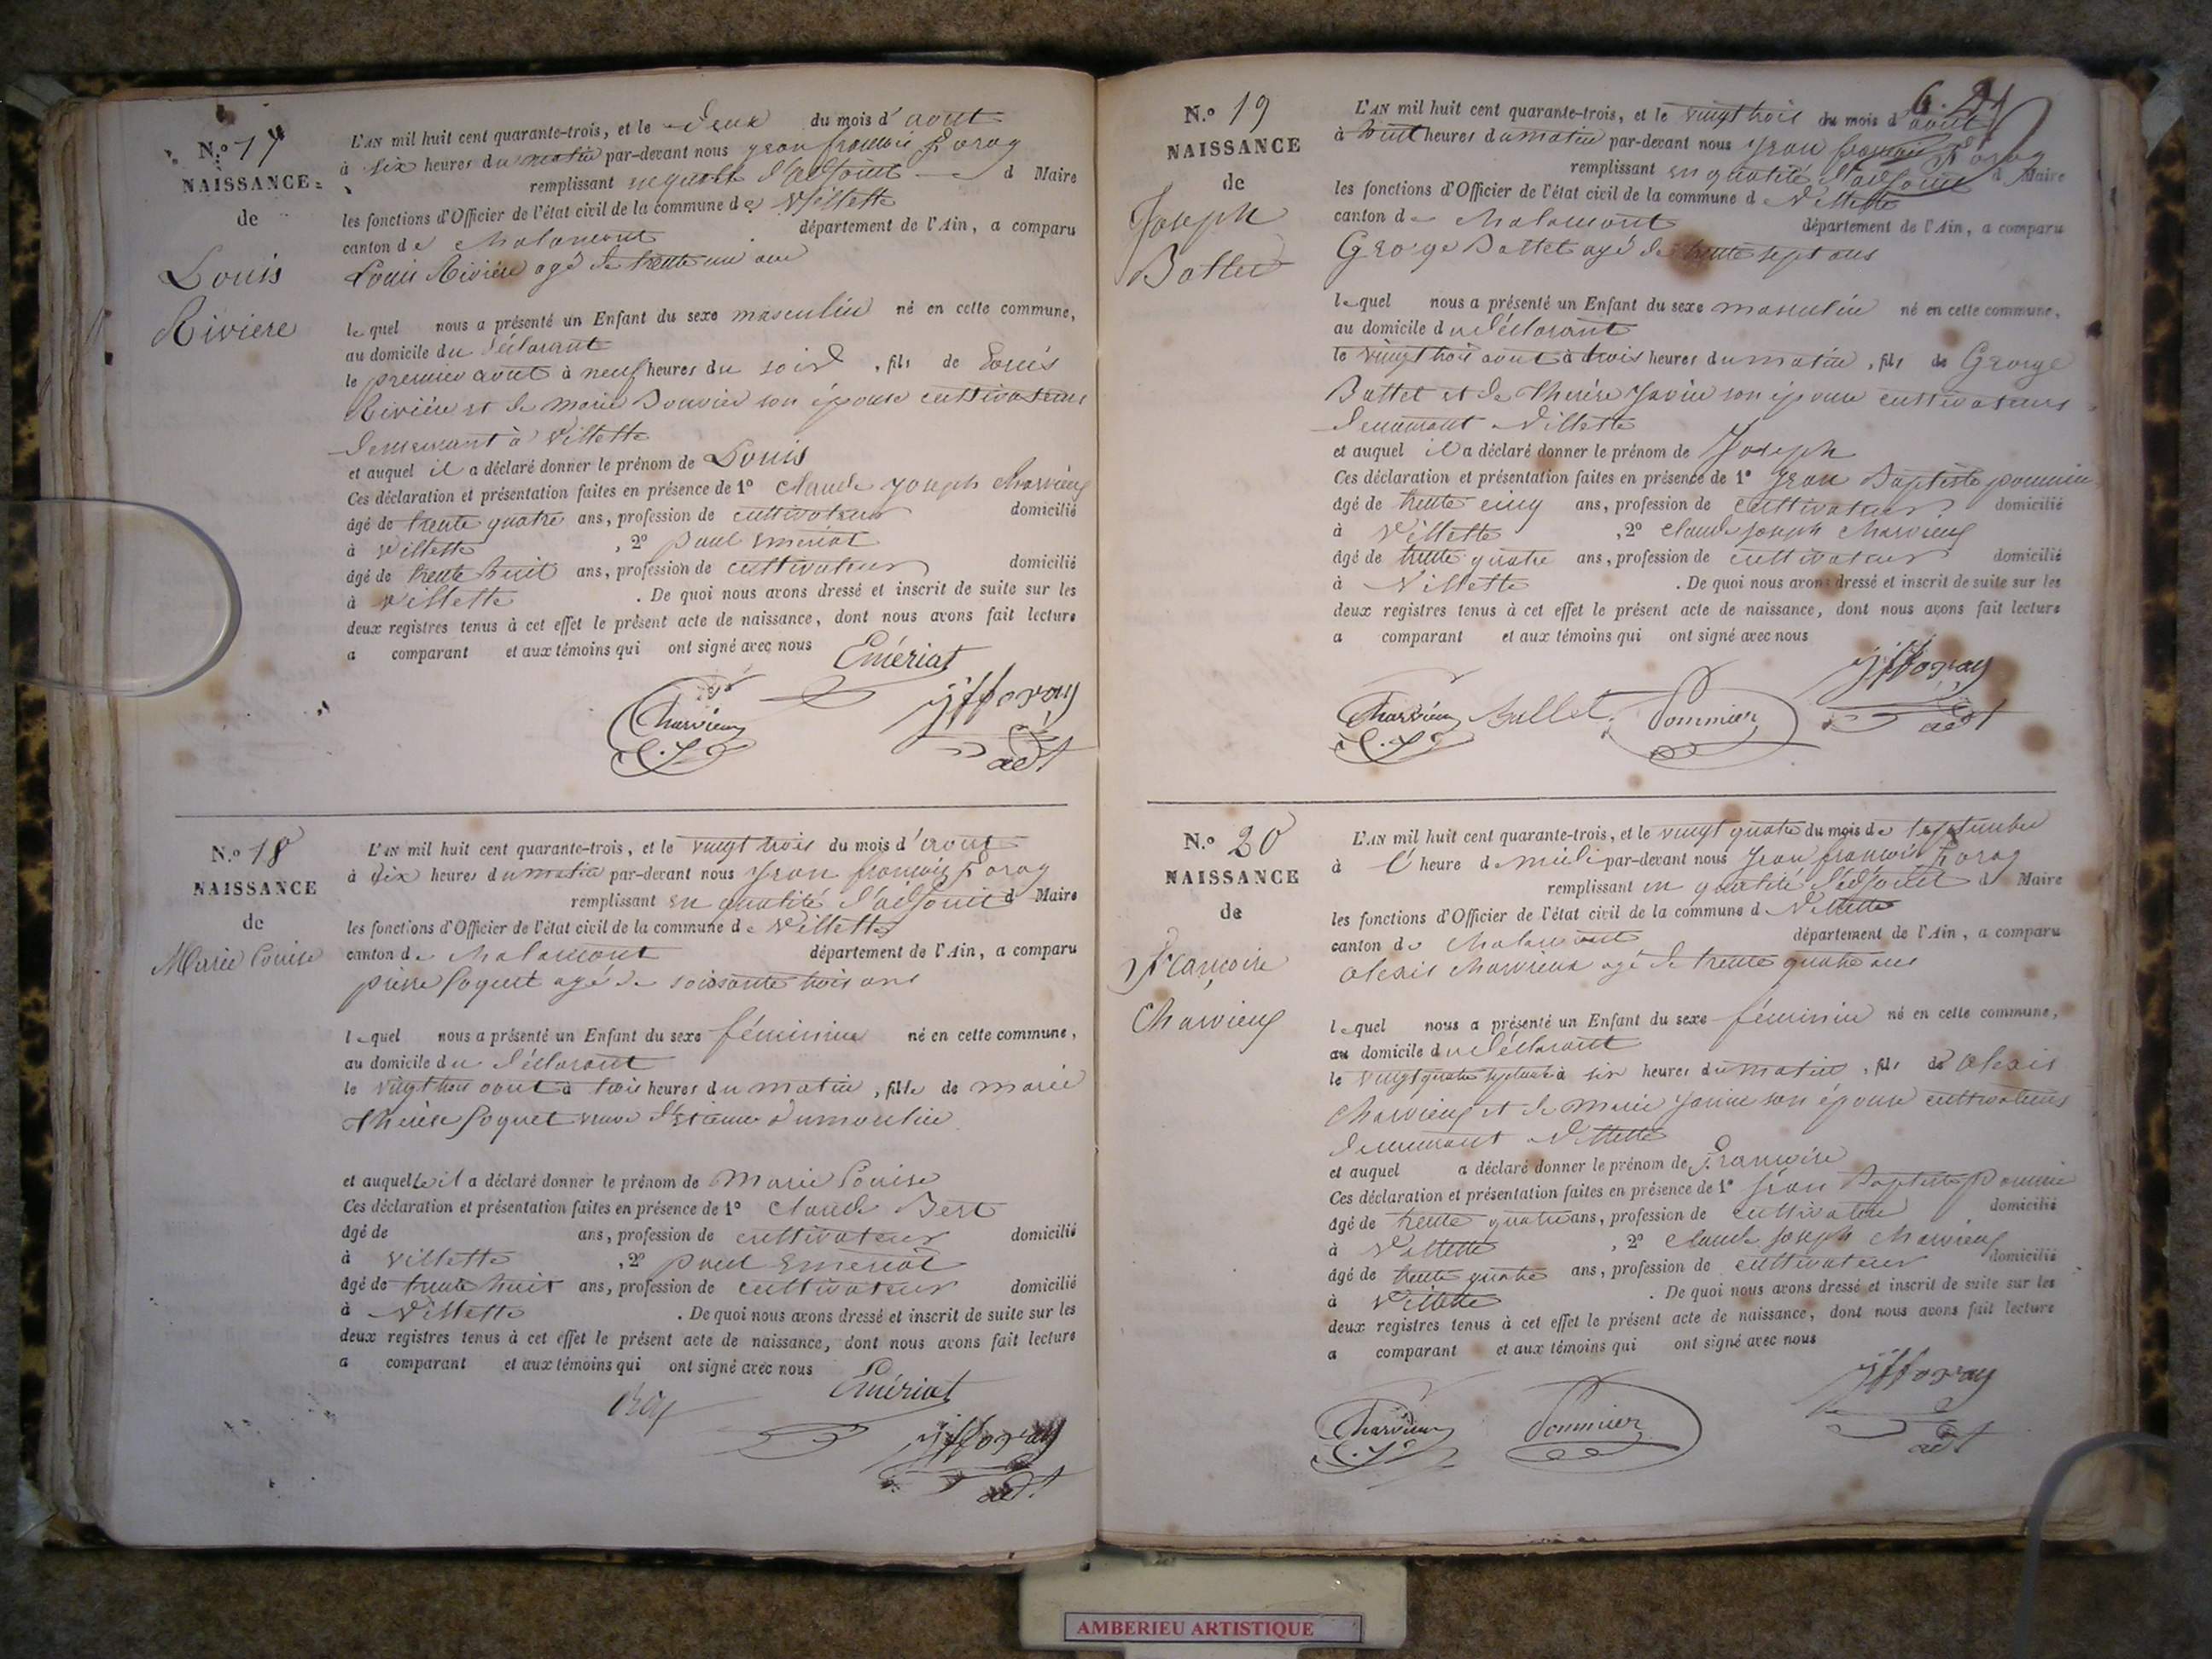 N.º 17
NAISSANCE
de
Louis
Riviere
L'AN mil huit cent quarante-trois, et le deux du mois d'aout
à six heures du matin par-devant nous jean francois foray
remplissant en qualité d'adjoint d Maire
les fonctions d'Officier de l'état civil de la commune de Villette
canton de chalamont département de l'Ain, a comparu
Louis Riviére agé de trente un ans
lequel nous a présenté un Enfant du sexe masculin né en cette commune,
au domicile du déclarant
le premier aout à neuf heures du soir, fils de Louis
Riviére et de marie Bouvier son épouse cultivateurs
demeurant à Villette
et auquel il a déclaré donner le prénom de Louis
Ces déclaration et présentation faites en présence de 1º claude joseph charvieux
âgé de trente quatre ans, profession de cultivateur domicilié
à Villette, 2º paul emeriat
âgé de trente huit ans, profession de cultivateur domicilié
à Villette. De quoi nous avons dressé et inscrit de suite sur les
deux registres tenus à cet effet le présent acte de naissance, dont nous avons fait lecture
a comparant et aux témoins qui ont signé avec nous
Emériat
Charvieux
C. J.
jfforay
adt
N.º 18
NAISSANCE
de
Marie Louise
L'AN mil huit cent quarante-trois, et le vingt trois du mois d'aout
à dix heures du matin par-devant nous jean francois foray
remplissant en qualité d'adjoint d Maire
les fonctions d'Officier de l'état civil de la commune de Villette
canton de chalamont département de l'Ain, a comparu
pierre Poquet agé de soissante trois ans
lequel nous a présenté un Enfant du sexe féminin né en cette commune,
au domicile du déclarant
le vingt trois aout à trois heures du matin, fille de marie
thérèse Poquet veuve d'etienne dumoulin
et auquelle il a déclaré donner le prénom de marie Louise
Ces déclaration et présentation faites en présence de 1º claude Bert
âgé de ans, profession de cultivateur domicilié
à Villette, 2º paul emeriat
âgé de trente huit ans, profession de cultivateur domicilié
à Villette. De quoi nous avons dressé et inscrit de suite sur les
deux registres tenus à cet effet le présent acte de naissance, dont nous avons fait lecture
a comparant et aux témoins qui ont signé avec nous
Emériat
jfforay
adt
N.º 19
NAISSANCE
de
Joseph
Battet
L'AN mil huit cent quarante-trois, et le vingt trois du mois d'aout
à huit heures du matin par-devant nous jean francois foray
remplissant en qualité d'adjoint d Maire
les fonctions d'Officier de l'état civil de la commune d Villette
canton de chalamont département de l'Ain, a comparu
George Battet agé de trente sept ans
lequel nous a présenté un Enfant du sexe masculin né en cette commune,
au domicile du déclarant
le vingt trois aout à trois heures du matin, fils de George
Battet et de thérèse Janin son épouse cultivateurs
demeurant Villette
et auquel il a déclaré donner le prénom de Joseph
Ces déclaration et présentation faites en présence de 1º Jean Baptiste pommier
âgé de trente cinq ans, profession de cultivateur domicilié
à Villette, 2º claude joseph charvieux
âgé de trente quatre ans, profession de cultivateur domicilié
à Villette. De quoi nous avons dressé et inscrit de suite sur les
deux registres tenus à cet effet le présent acte de naissance, dont nous avons fait lecture
a comparant et aux témoins qui ont signé avec nous
jfforay
adt
Charvieux Battet Pommier
C. J.
N.º 20
NAISSANCE
de
francoise
Charvieux
L'AN mil huit cent quarante-trois, et le vingt quatre du mois de septembre
à l'heure de midi par-devant nous Jean francois foray
remplissant en qualité d'adjoint d Maire
les fonctions d'Officier de l'état civil de la commune d Villette
canton de chalamont département de l'Ain, a comparu
alexis charvieux agé de trente quatre ans
lequel nous a présenté un Enfant du sexe féminin né en cette commune,
au domicile du déclarant
le vingt quatre septembre à six heures du matin, fils de alexis
charvieux et de marie janin son épouse cultivateurs
demeurant Villette
et auquel a déclaré donner le prénom de francoise
Ces déclaration et présentation faites en présence de 1º jean Baptiste Pommier
âgé de trente quatre ans, profession de cultivateur domicilié
à Villette, 2º claude joseph charvieux
âgé de trente quatre ans, profession de cultivateur domicilié
à Villette. De quoi nous avons dressé et inscrit de suite sur les
deux registres tenus à cet effet le présent acte de naissance, dont nous avons fait lecture
a comparant et aux témoins qui ont signé avec nous
jfforay
adt
Charvieux Pommier
C. J.
AMBERIEU ARTISTIQUE